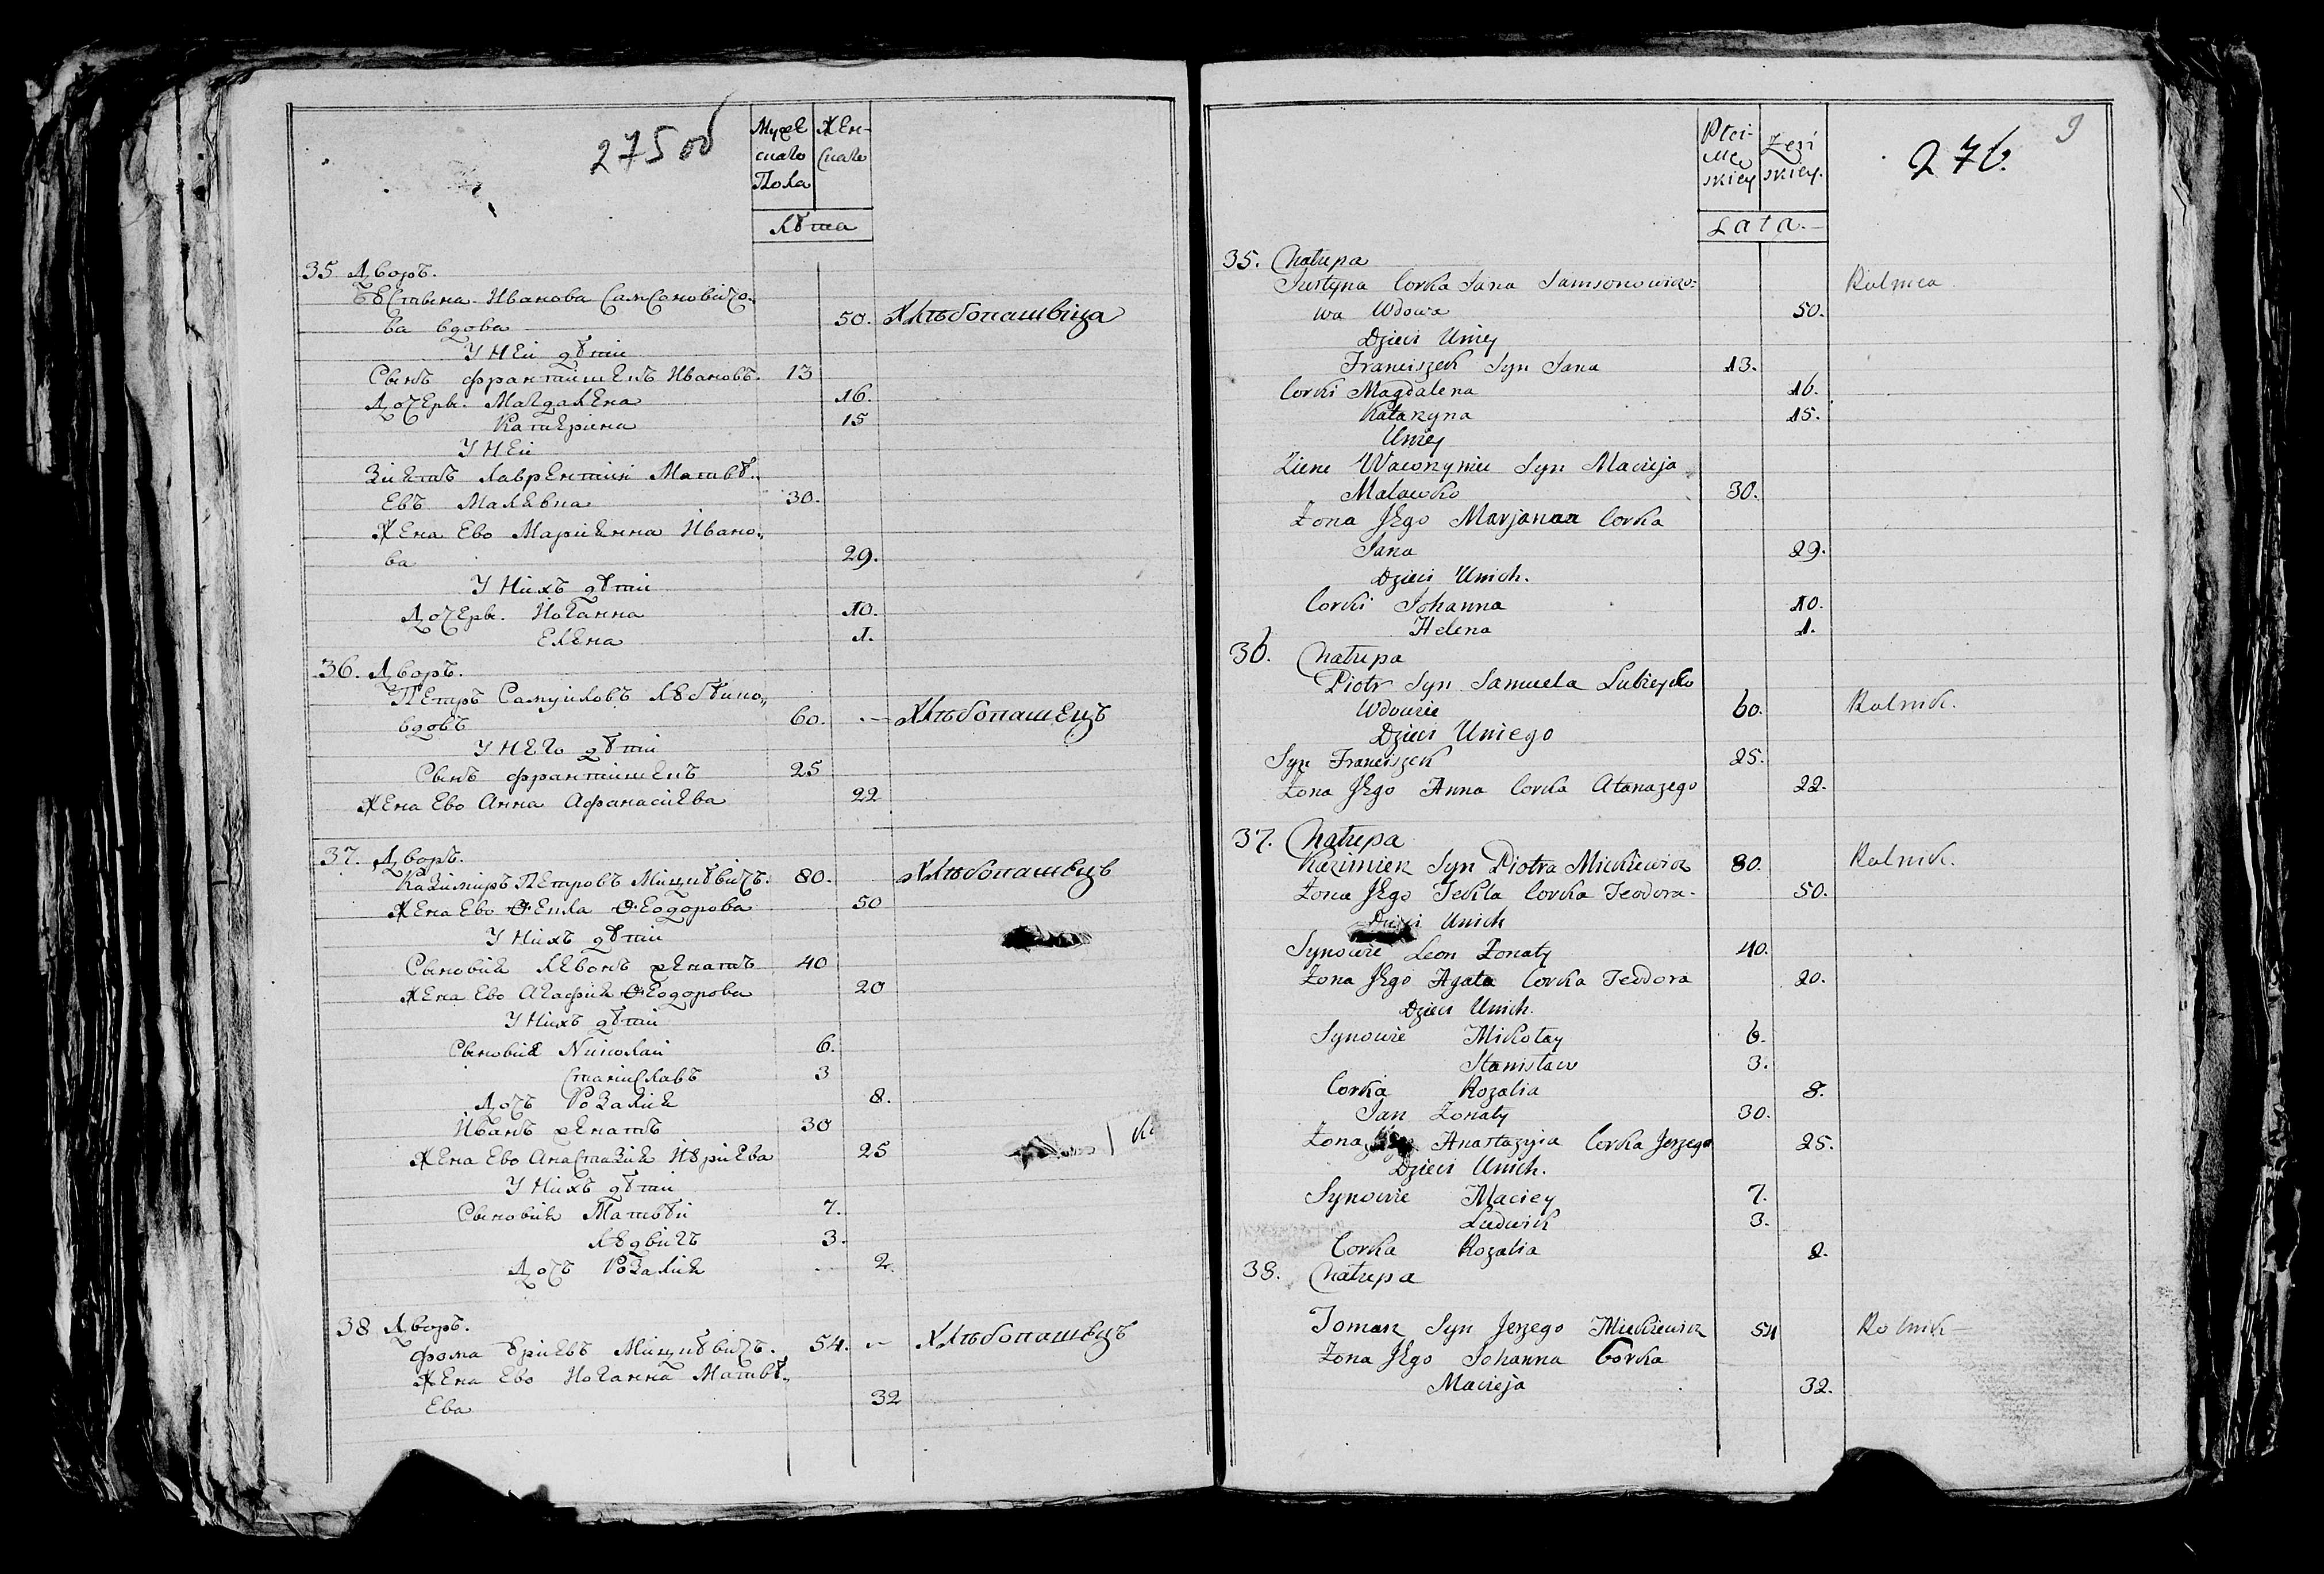 275 об
Мужескаго Пола
Женскаго
Лѣта
35 Дворъ.
Іустына Иванова Самсоновичо-
ва вдова 50. Хлѣбопашвица
У Ней дѣти
Сынъ францишекъ Ивановъ. 13
Дочерь. Магдалена 16.
Катерина 15
У Ней
Зять Лаврентій Матвѣ-
евъ Малевка 30.
Жена Ево Маріянна Ивано-
ва 29.
У Нихъ дѣти
Дочерь. Иоганна 10.
Елена 1.
36. Дворъ.
Петръ Самуиловъ
вдовъ 60. Хлѣбопашецъ
У Него дѣти
Сынъ францишекъ 25
Жена Ево Анна Афанасиева 22
37. Дворъ.
Казимиръ Петровъ Мицкѣвичъ. 80. Хлѣбопашецъ
Жена Ево Ѳекла Ѳеодорова 50
У Нихъ дѣти
Сыновия Левонъ женатъ 40
Жена Ево Агафия Ѳеодорова 20
У Нихъ дѣти
Сыновия Николай 6.
Станиславъ 3
Дочъ Розалия 8.
Иванъ женатъ 30
Жена Ево Анастазия Юриева 25
У Нихъ дѣти
Сыновия Матвѣй 7.
Людвигъ 3.
Дочъ Розалия 2.
38 Дворъ.
фома Юриевъ Мицкѣвичъ. 54. Хлѣбопашецъ
Жена Ево Иоганна Матвѣ-
ева 32
276. 9
Płci Męskiey
Żeńskiey.
Lata.
35. Chałupa
Justyna Corka Jana Samsonowiczo- Rolnica
wa Wdowa 50.
Dzieci Uniey
Franciszek Syn Jana 13.
Corki Magdalena 16.
Katarzyna 15.
Uniey
Zienc Wawrzyniec Syn Macieja
Malewko 30.
Żona Jego Marjanna Corka
Jana 29.
Dzieci Unich.
Corki Johanna 10.
Helena 1.
36. Chałupa
Piotr Syn Samuela Lubieyko
Wdowiec 60. Rolnik.
Dzieci Uniego
Syn Franciszek 25.
Żona Jego Anna Corka Atanazego 22.
37. Chałupa
Kazimierz Syn Piotra Mickiewicz 80. Rolnik.
Żona Jego Tekla Corka Teodora. 50.
Dzieci Unich
Synowie Leon Żonaty 40.
Żona Jego Agata Corka Teodora 20.
Dzieci Unich.
Synowie Mikołay 6.
Stanisław 3.
Corka Rozalia 8.
Jan Żonaty 30.
Żona Jego Anastazyia Corka Jerzego 25.
Dzieci Unich.
Synowie Maciey 7.
Ludwik 3.
Corka Rozalia 2.
38. Chałupa
Tomasz Syn Jerzego Mickiewicz 54 Rolnik
Żona Jego Johanna Corka
Macieja 32.